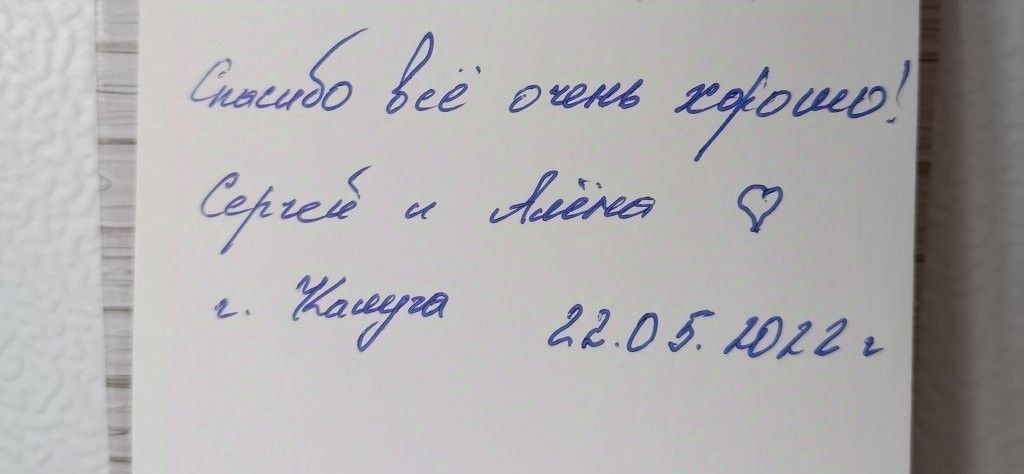 Спасибо всё очень хорошо!
Сергей и Алёна ♡
г. Калуга 22.05.2022 г